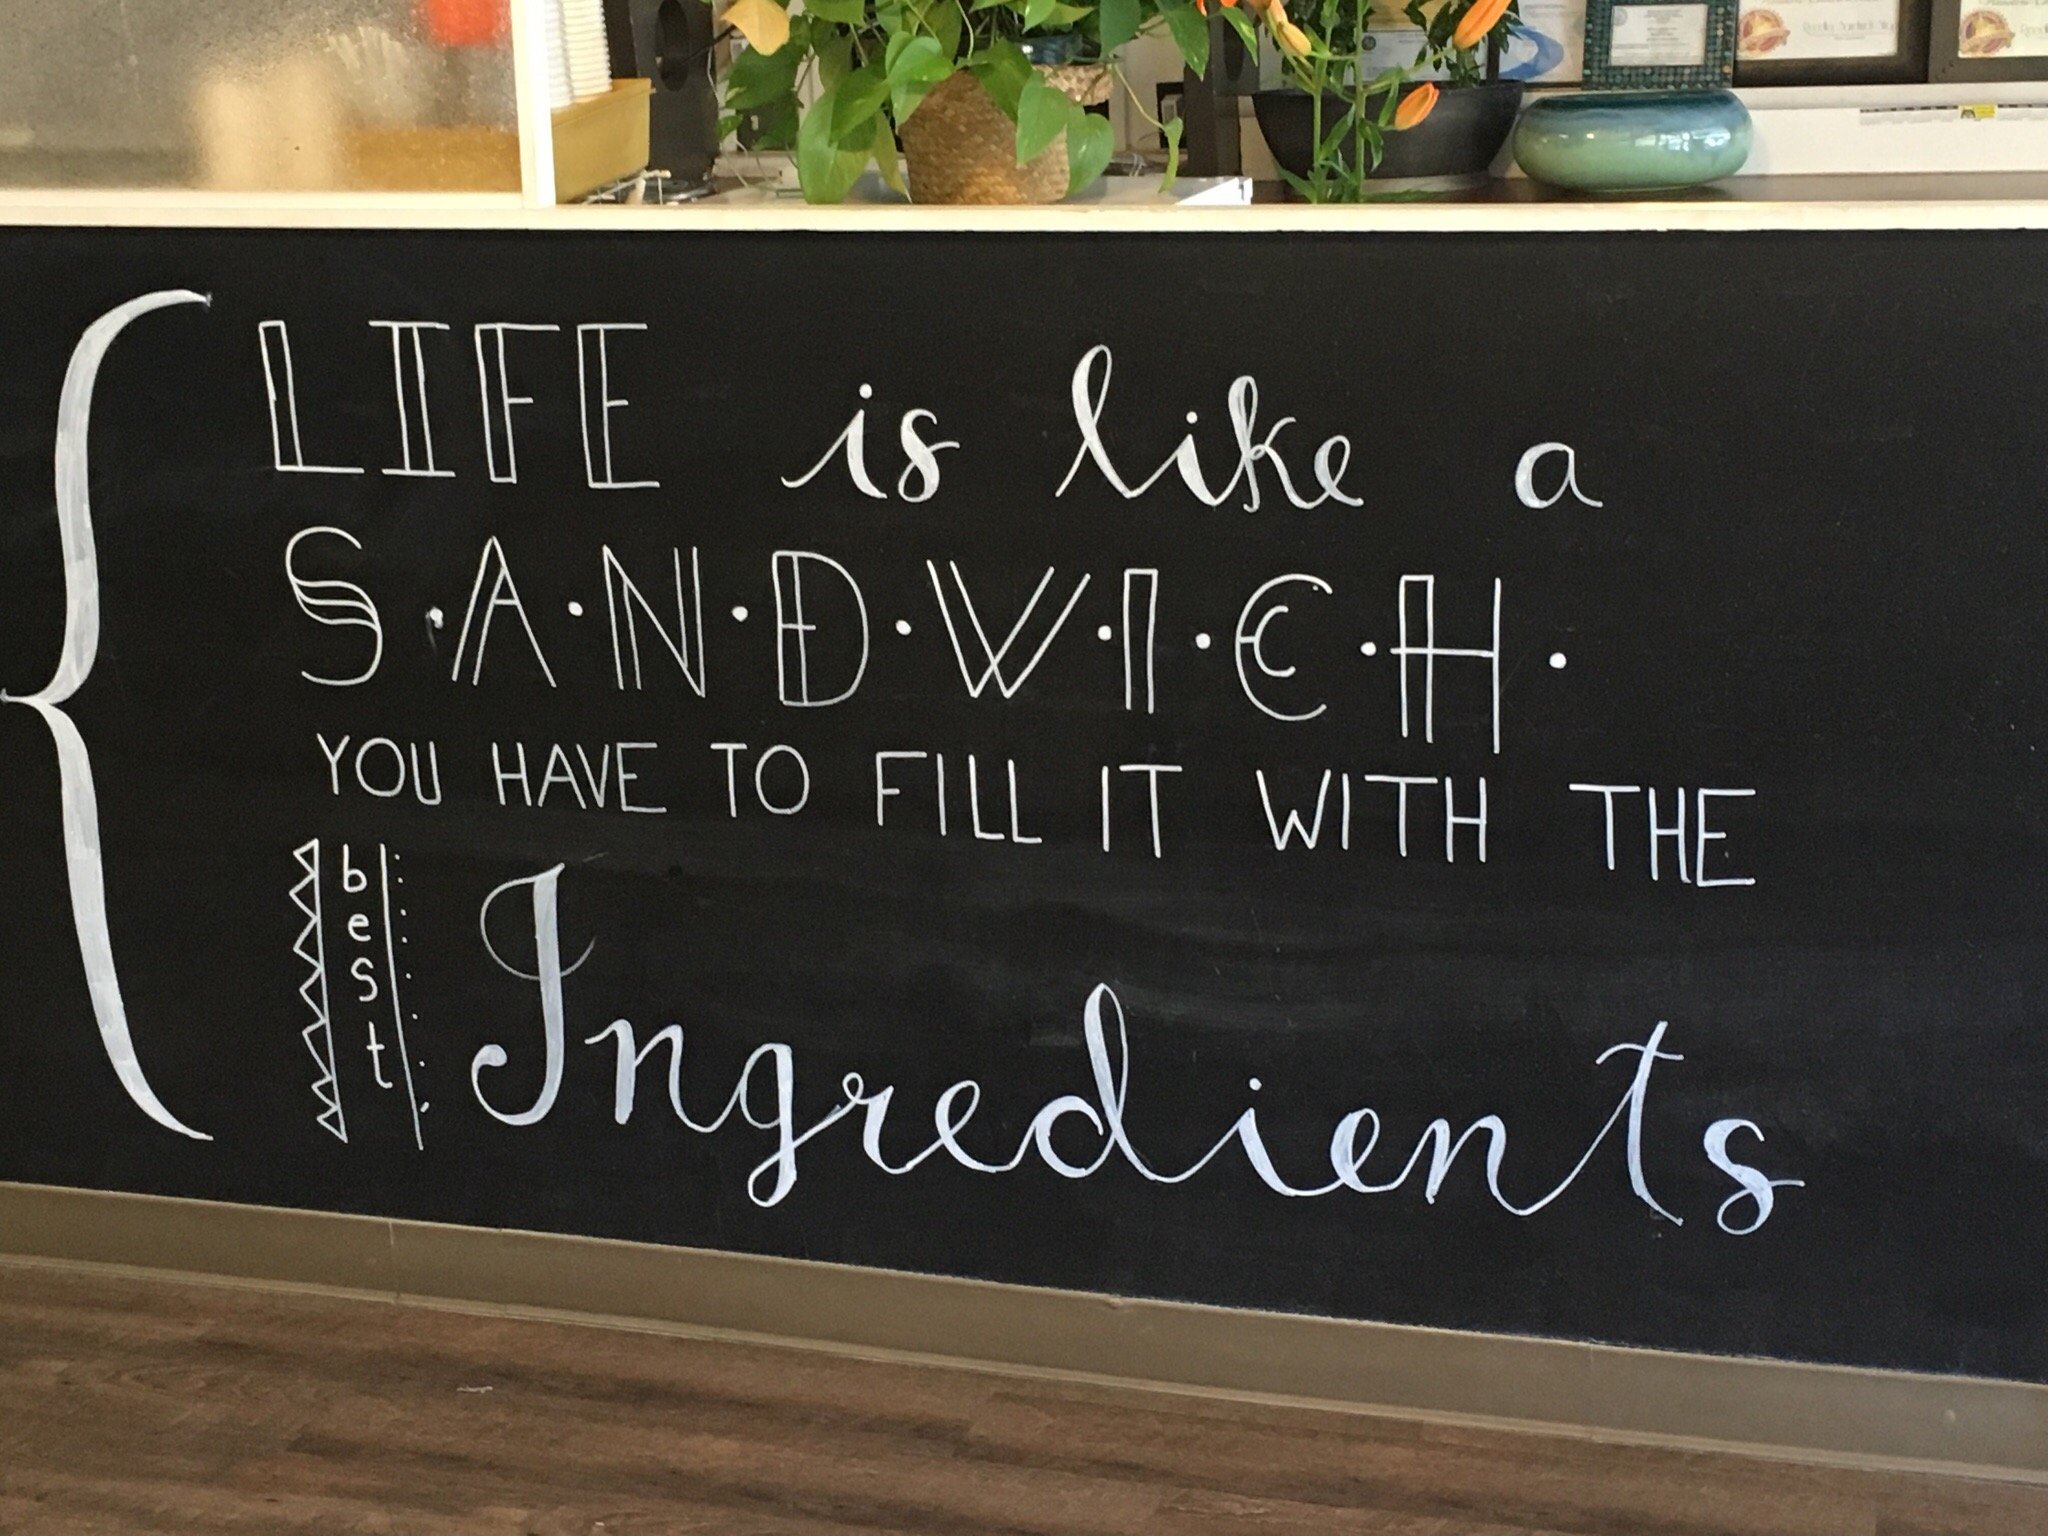 LIFE is like a
S·A·N·D·W·I·C·H·
YOU HAVE TO FILL IT WITH THE
best Ingredients